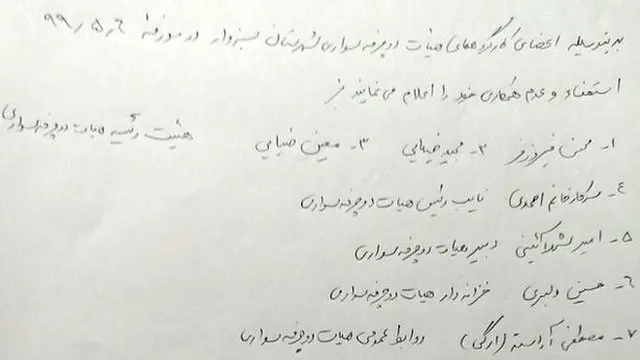 بدینوسیله اعضای کارگروههای هیات دوچرخه سواری شهرستان سبزوار در مورخه ۹۹/۵/۶
استعفاء و عدم همکاری خود را اعلام می نمایند
۱- محسن فیروزفر ۲- مجید ضیایی ۳- معین ضیایی هیئت رئیسه هیات دوچرخه سواری
۴- سرکار خانم احمدی نایب رئیس هیات دوچرخه سواری
۵- امیر دبیر هیات دوچرخه سواری
۶- حسین دلبری خزانه دار هیات دوچرخه سواری
۷- مصطفی آراسته (ارگی) روابط عمومی هیات دوچرخه سواری